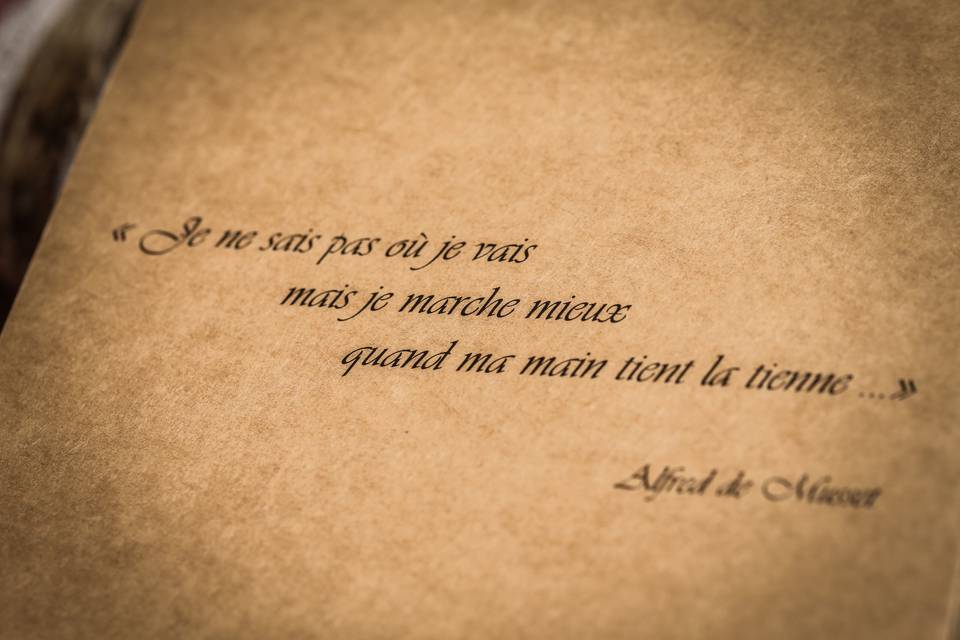 « Je ne sais pas où je vais
mais je marche mieux
quand ma main tient la tienne ...»
Alfred de Musset